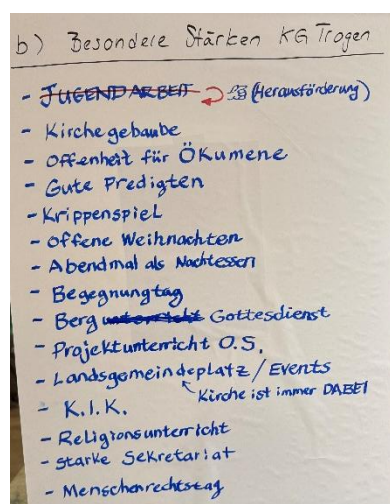 b) Besondere Stärken KG Trogen
- JUGENDARBEIT (Herausförderung)
- Kirchegebaube
- Offenheit für ÖKumene
- Gute Predigten
- Krippenspiel
- Offene Weihnachten
- Abendmal als Nachtessen
- Begegnungtag
- Berg unterricht Gottesdienst
- Projektunterricht O.S.
- Landsgemeindeplatz / Events
Kirche ist immer DABEI
- K.I.K.
- Religionsunterricht
- Starke Sekretariat
- Menschenrechtstag